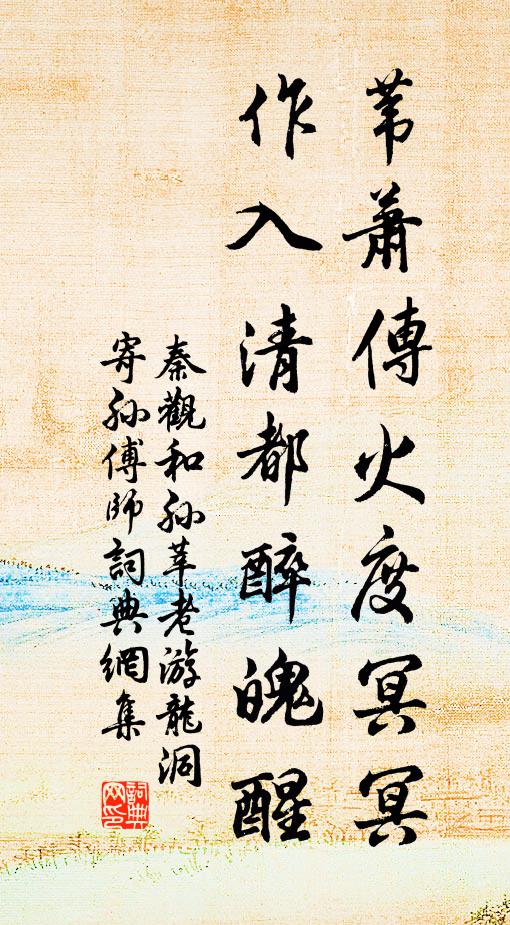 苇蕭傳火度冥冥
作入清都醉魄醒
秦觀和孙莘老游龍洞
寄孙傅師詞典網集
詞典
网印